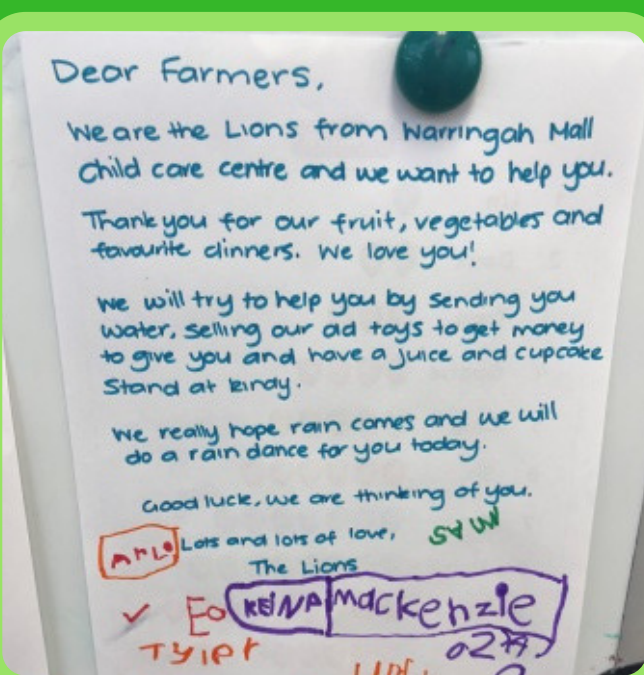 Dear Farmers,
We are the Lions from Warringah Mall
Child care centre and we want to help you.
Thank you for our fruit, vegetables and
favourite dinners. We love you!
We will try to help you by sending you
water, selling our old toys to get money
to give you and have a juice and cupcake
Stand at kindy.
We really hope rain comes and we will
do a rain dance for you today.
Good luck, we are thinking of you.
Lots and lots of love,
The Lions
Arlo
KEINA Mackenzie
TYler